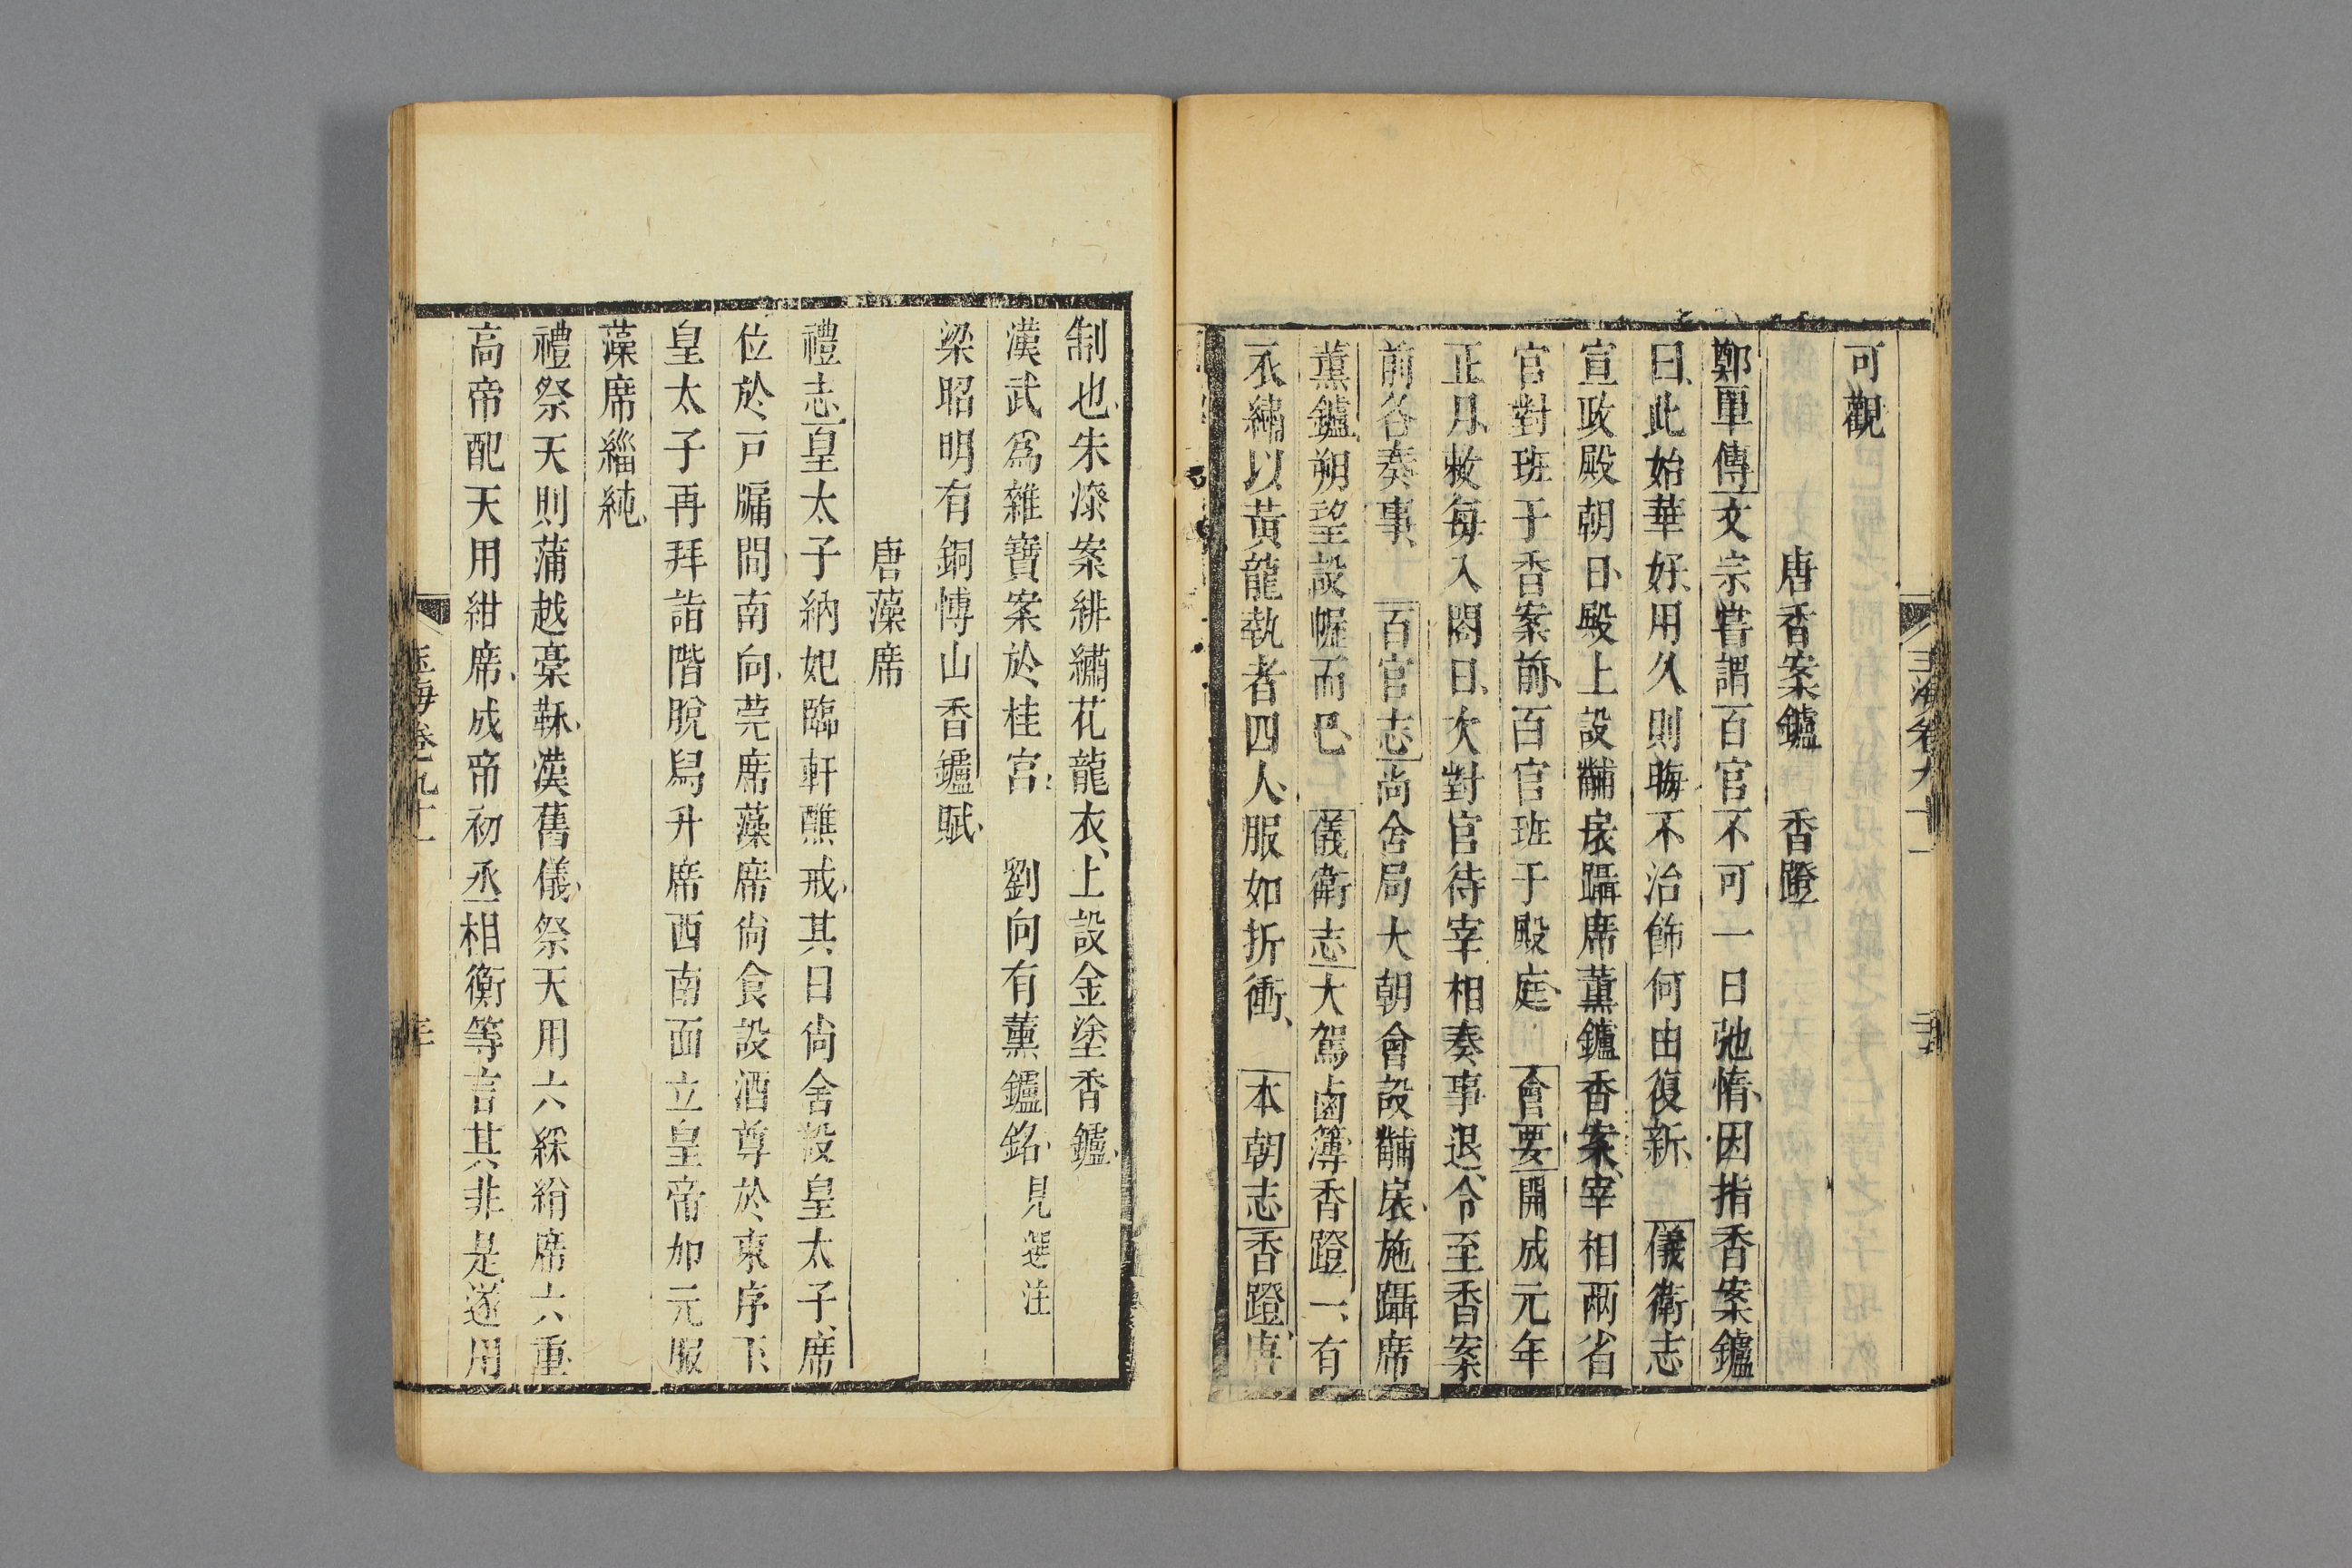 玉海卷九十一
可觀
唐香案鑪 香蹬
鄭覃傳文宗嘗謂百官不可一日弛惰因指香案鑪
曰此始華好用久則晦不治飾何由復新 儀衛志
宣政殿朝日殿上設黼扆躡席薰鑪香案宰相兩省
官對班于香案前百官班于殿庭 會要開成元年
正月敕每入閤日次對官待宰相奏事退令至香案
前各奏事 百官志尚舍局大朝會設黼扆施躡席
薰鑪朔望設幄而已 儀衛志大駕鹵簿香蹬一有
衣繡以黃龍執者四人服如折衝 本朝志香蹬唐
制也朱漆案緋繡花龍衣上設金塗香鑪
漢武爲雜寶案於桂宮 劉向有薰鑪銘見選注
梁昭明有銅博山香鑪賦
唐藻席
禮志皇太子納妃臨軒醮戒其日尙舍設皇太子席
位於戸牖間南向莞席藻席尙食設酒尊於東序下
皇太子再拜詣階脫舃升席西南面立皇帝如元服
藻席緇純
禮祭天則蒲越槀秣漢舊儀祭天用六綵綃席六重
高帝配天用紺席成帝初丞相衡等言其非是遂用
玉海卷九十一